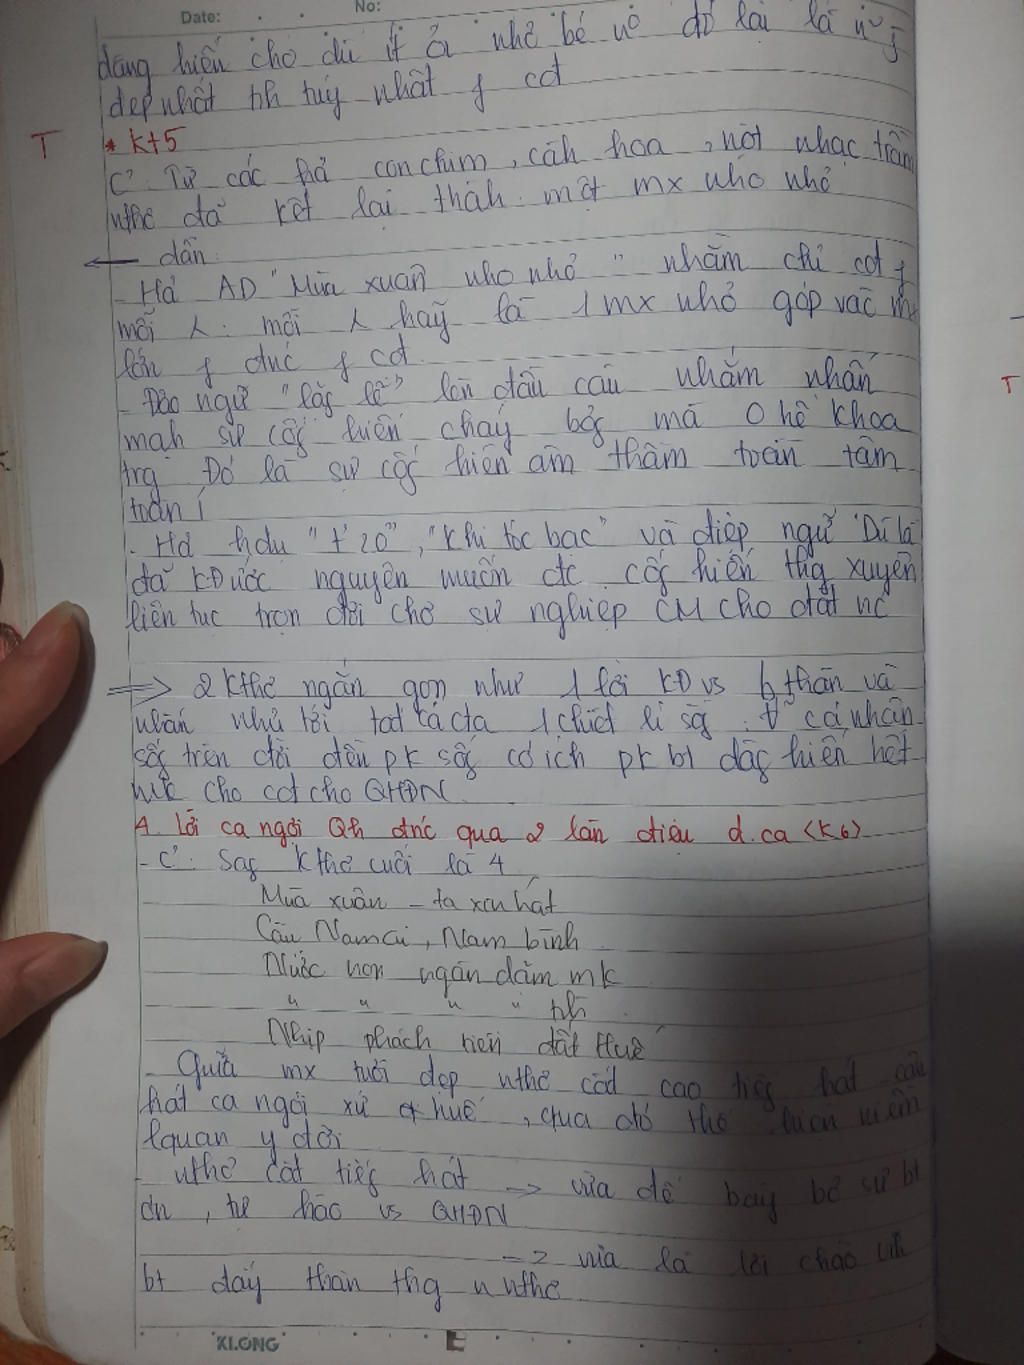 Date: No:
dâng hiến cho dù ít ỏi nhỏ bé nó đó lại là
đẹp nhất th túy nhất cđ
T * kt5
C': Từ các h/ả con chim, càh hoa, nốt nhạc trầm
nthơ đã kết lại thàh một mx nho nhỏ
← dẫn
- H/ả AD "Mùa xuân nho nhỏ" nhằm chỉ cđ
mỗi λ: mỗi λ hãy là 1 mx nhỏ góp vào mx
lớn đnc cđ
- Đảo ngữ "lặg lẽ" lên đầu câu nhằm nhấn
mạh sự cốg hiến cháy bỏg mà 0 hề khoa
trg Đó là sự cốg hiến âm thầm toàn tâm
toàn í
- H/ả hdụ "t 20", "khi tóc bạc" và điệp ngữ "Dù là
đã KĐ ước nguyện muốn đc cốg hiến thg xuyên
liên tục trọn đời cho sự nghiệp CM cho đất nc
=> 2 khthơ ngắn gọn như 1 lời KĐ vs b thân và
nhắn nhủ tới tất cả cta 1 chiết lí sốg: cá nhân
sốg trên đời đều pk sốg có ích pk bt dâg hiến hết
mk cho cđ cho QHĐN
4. Lời ca ngợi Qh đnc qua 2 làn điệu d.ca (K6)
- C': Sag khthơ cuối là 4
Mùa xuân - ta xin hát
Câu Nam ai, Nam bình
Nước non ngàn dặm mk
" " " " th
Nhịp phách tiền đất Huế
- Giữa mx tươi đẹp nthơ cất cao tiếg hát câu
hát ca ngợi xứ Huế, qua đó thể hiện niềm
lquan y đời
- nthơ cất tiếg hát -> vừa để bày bỏ sự bt
đn, tự hào vs QHĐN
-> vừa là lời chào
bt đầy thân thg n nthơ
KLONG